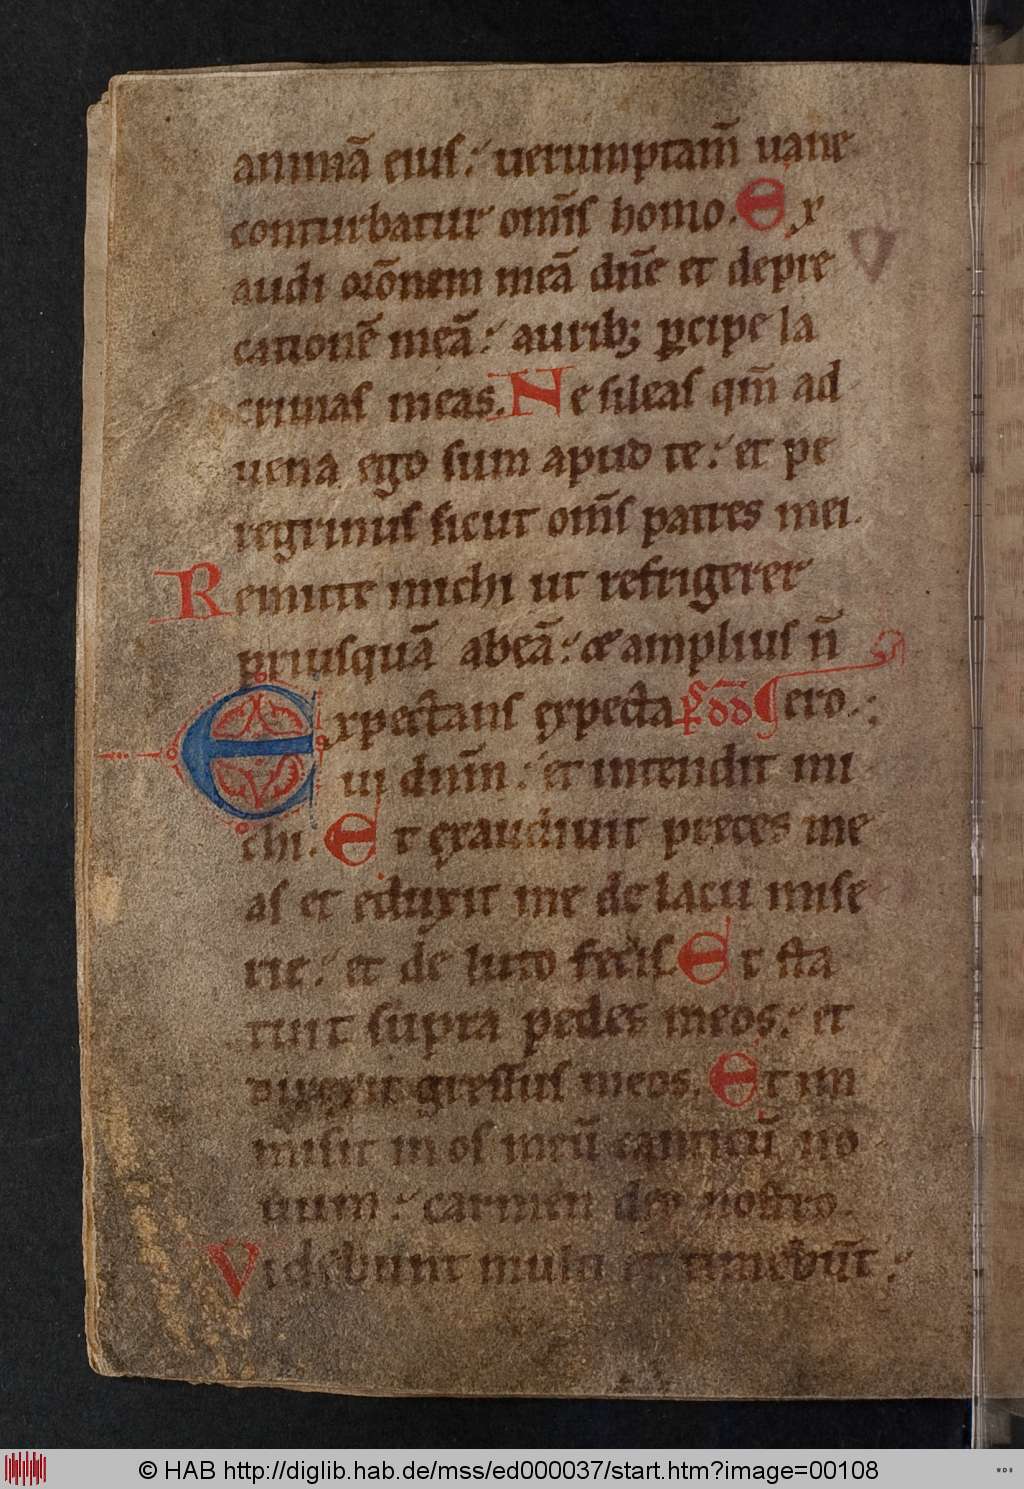 animā eius: uerumptam̄ uane
conturbatur om̄is homo. Ex
audi or̄onem meā dn̄e et depre
cationē meā: aurib; ꝑcipe la
crimas meas. Ne sileas qm̄ ad
uena ego sum apud te: et pe
regrinus sicut om̄s patres mei.
Remitte michi ut refrigerer
priusquā abeā: & amplius n̄
Expectans expecta p̄s dd̄ ¶ ero.:
ui dn̄m: et intendit mi
chi. Et exaudiuit preces me
as et eduxit me de lacu mise
rie: et de luto fecis. Et sta
tuit supra pedes meos: et
direxit gressus meos. Et im
misit in os meū canticū no
uum: carmen deo nostro.
Videbunt multi et timebūt:
© HAB http://diglib.hab.de/mss/ed000037/start.htm?image=00108